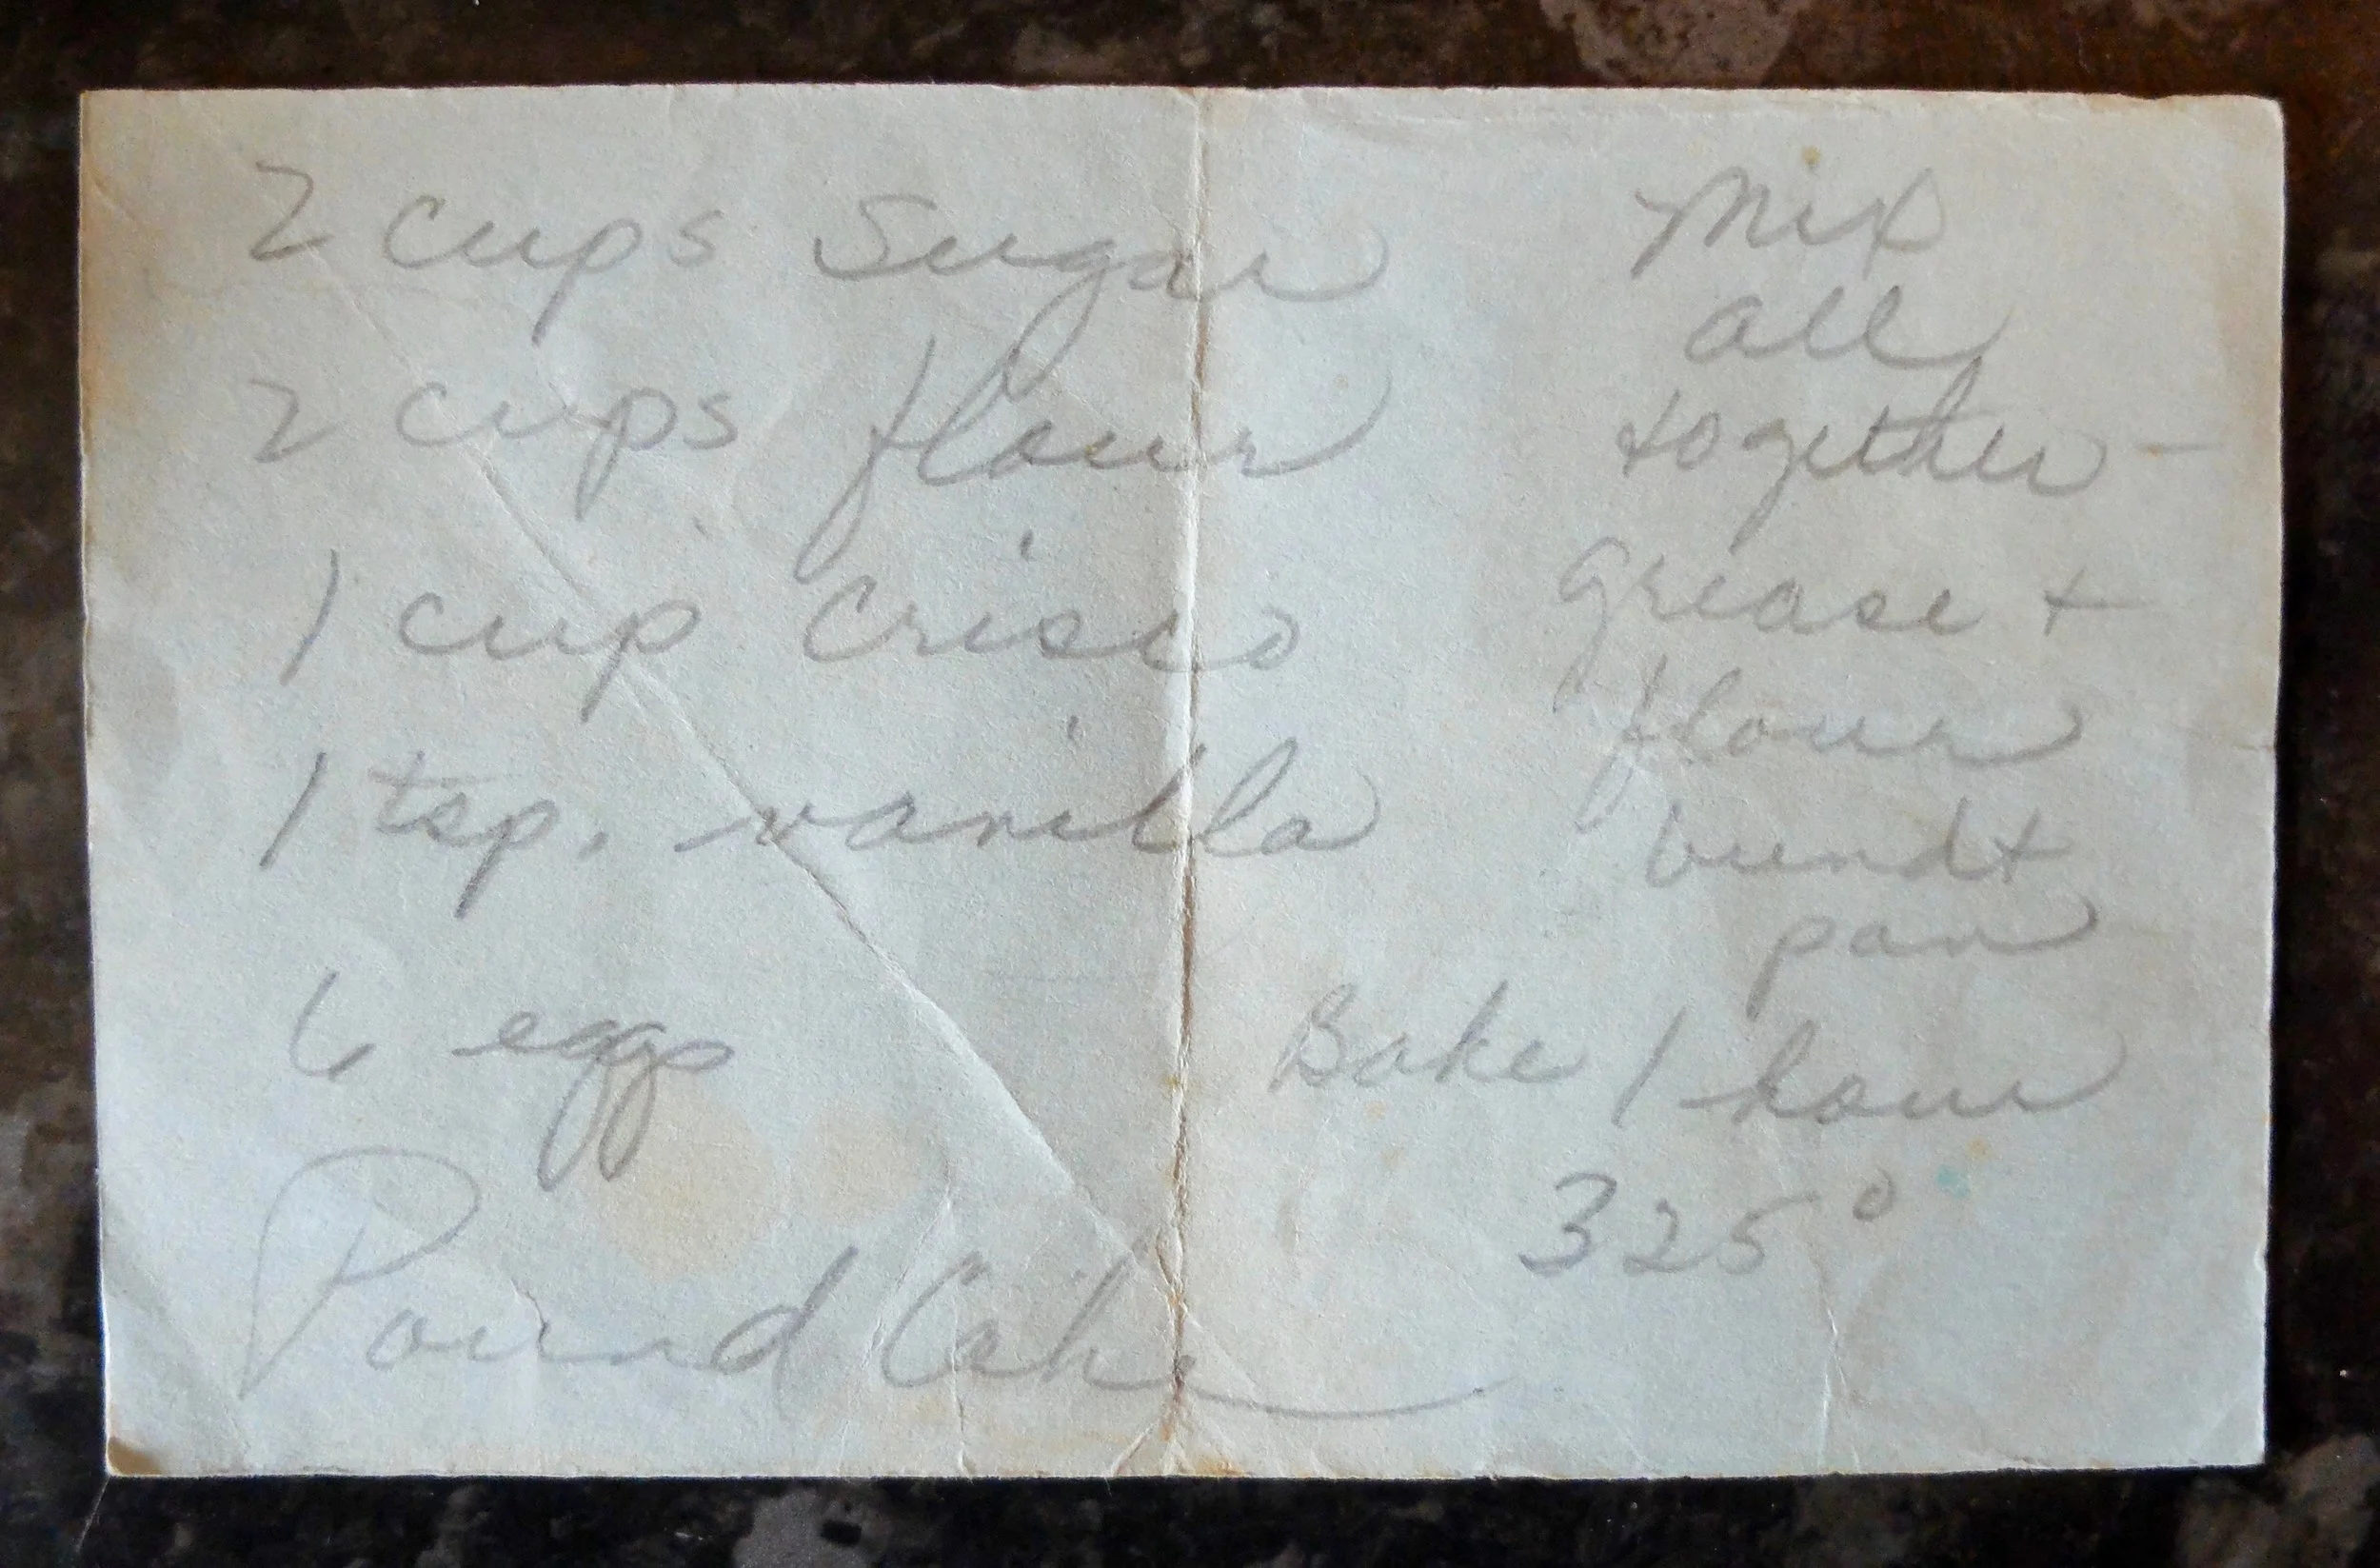 2 cups sugar
2 cups flour
1 cup crisco
1 tsp. vanilla
6 eggs
Pound Cake
Mix
all
together -
grease +
flour
bundt
pan
Bake 1 hour
325°